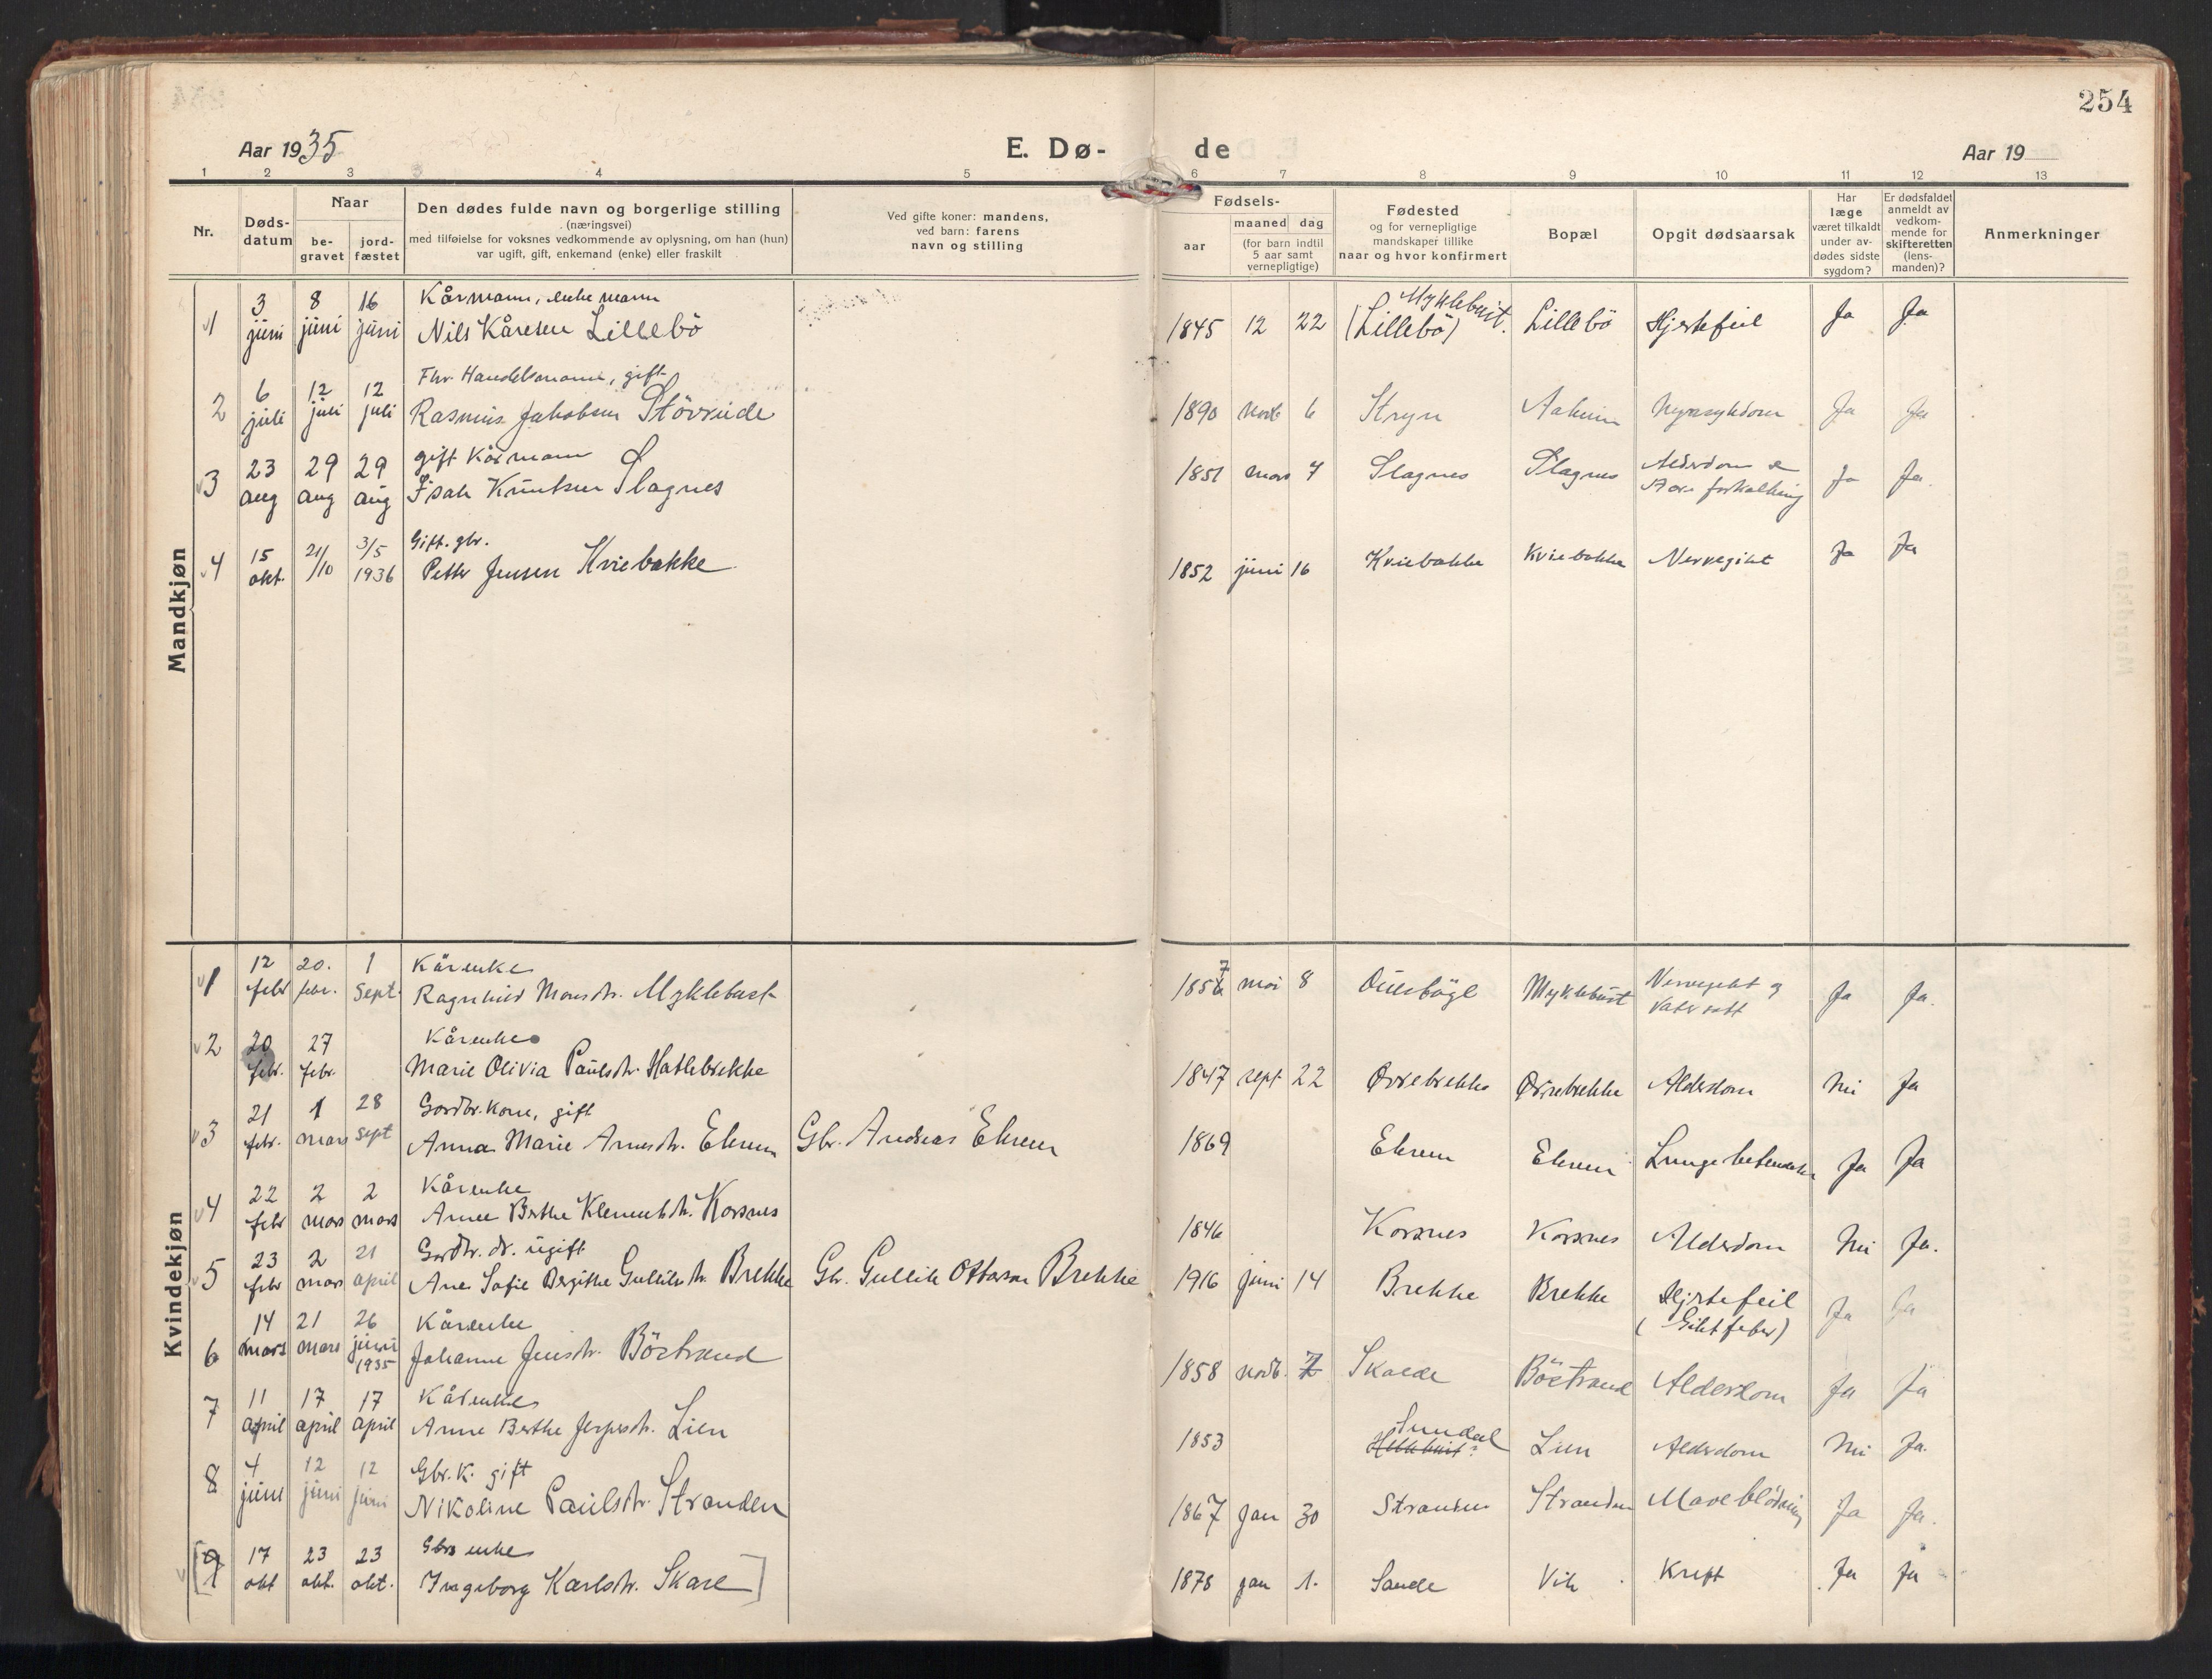 254
Aar 1935
E. Dø-
de
Aar 19
1 2 3 4 5 6 7 8 9 10 11 12 13
Nr.
Døds-
datum
Naar
be-
gravet
jord-
fæstet
Den dødes fulde navn og borgerlige stilling
(næringsvei)
med tilføielse for voksnes vedkommende av oplysning, om han (hun)
var ugift, gift, enkemand (enke) eller fraskilt
Ved gifte koner: mandens,
ved barn: farens
navn og stilling
Fødsels-
aar
maaned dag
(for barn indtil
5 aar samt
vernepligtige)
Fødested
og for vernepligtige
mandskaper tillike
naar og hvor konfirmert
Bopæl
Opgit dødsaarsak
Har
læge
været tilkaldt
under av-
dødes sidste
sygdom?
Er dødsfaldet
anmeldt av
vedkom-
mende for
skifteretten
(lens-
manden)?
Anmerkninger
Mandkjøn
3 8 16 Kårmann, enkemann Myklebust.
1 juni juni juni Nils Kåresen Lillebö 1845 12 22 (Lillebö) Lillebö Hjertefeil Ja Ja
6 12 12 Fhv. Handelsmann, gift
2 juli juli juli Rasmus Jakobsen Störside 1890 6 Stryn Aaheim Nyresykdom Ja Ja
23 29 29 gift Kårmann Alderdom
3 aug aug aug Isak Knutsen Slagnes 1851 mars 7 Slagnes Slagnes forkalkning Ja Ja.
15 21/ 3/5 Gift. gbr.
4 okt. /10 1936 Petter Jensen Kviebakke 1852 juni 16 Kviebakke Kviebakke Nervegikt Ja Ja
Kvindekjøn
12 20. 1 Kårenke 7 Nervegikt og
1 febr febr. Sept. Ragnhild Monsdtr. Myklebust 1856 mai 8 Myklebust Vatersott Ja Ja.
20 27 Kårenke
2 febr. febr. Marie Olivia Paulsdtr. Hatlebrekke 1847 sept 22 Ørrebrekke Ørrebrekke Alderdom Nei Ja
21 1 28 Gardbr. kone, gift
3 febr. mars sept Anna Marie Arnesdtr. Ekrem Gbr. Andreas Ekrem 1869 Ekrem Ekrem Lungebetendelse Ja Ja
22 2 2 Kårenke
4 febr mars mars Anne Berthe Klementsdtr. Korsnes 1846 Korsnes Korsnes Alderdom Nei Ja.
23 2 21 Gardbr. dr. ugift
5 febr mars april Ane Sofie Bergithe Gullikdtr. Brekke Gbr. Gullik Ottarson Brekke 1916 juni 14 Brekke Brekke Hjertefeil Ja Ja
(Giktfeber)
14 21 26 Kårenke
6 mars mars juni Johanne Jensdtr. Böstrand 1858 novb. 7 Skaede Böstrand Alderdom Ja Ja
1935
11 17 17 Kårenke Sundal
7 april april april Anne Berthe Jespersdtr. Lien 1853 Lien Alderdom Nei Ja.
4 12 12 Gbr. K. gift
8 juni juni juni Nikoline Paulsdtr. Stranden 1867 Jan 30 Stranden Stranden Maveblödning Ja Ja.
17 23 23 Gbr. enke
[9 okt okt. okt. Ingeborg Karlsdtr. Skare] 1878 jan 1. Sande Vik Kreft Ja Ja